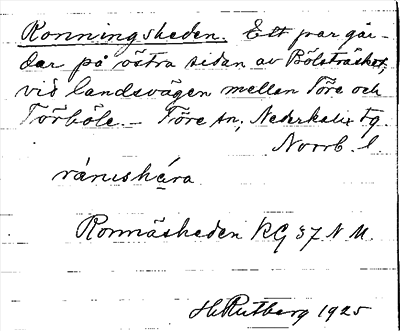 Ronningsheden. Ett par går-
dar på östra sidan av Bölsträsket,
vid landsvägen mellan Töre och
Törböle. – Töre sn, Nederkalix tg.
Norrb. l.
rånushära
Ronnäsheden RG 37 N M.
H. Rutberg 1925